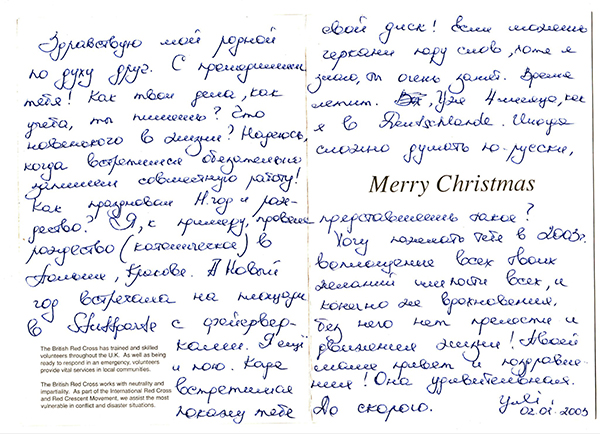 Здравствую мой родной
по духу друг. С праздниками
тебя! Как твои дела, как
учёба, ты пишешь? Что
новенького в жизни? Надеюсь,
когда встретимся обязательно
запишем совместную работу!
Как праздновал Н.год и рож-
дество? Я, к примеру, провела
рождество (католическое) в
Польше, Кракове. А Новый
год встречала на площади
в Stuttgarte с фейервер-
ками. Я ещё
и пою. Когда
встретимся
покажу тебе
The British Red Cross has trained and skilled
volunteers throughout the U.K. As well as being
ready to respond in an emergency, volunteers
provide vital services in local communities.
The British Red Cross works with neutrality and
impartiality. As part of the International Red Cross
and Red Crescent Movement, we assist the most
vulnerable in conflict and disaster situations.
свой диск! Если можешь
черкани пару слов, хотя я
знаю, ты очень занят. Время
летит. Уже 4 месяца, как
я в Deutschlande. Иногда
сложно думать по-русски,
Merry Christmas
представляешь такое?
Хочу пожелать тебе в 2003г.
воплощение всех твоих
желаний и всех, и
конечно же вдохновения,
без него нет прелести и
движения жизни! Твоей
маме привет и поздравле-
ния! Она удивительная.
До скорого. Yuli
02.01.2003